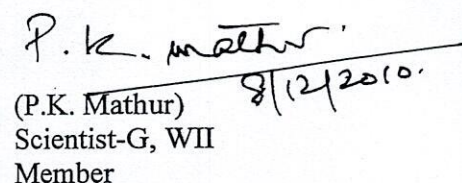 P. K. Mathur.
8/12/2010.
(P.K. Mathur)
Scientist-G, WII
Member